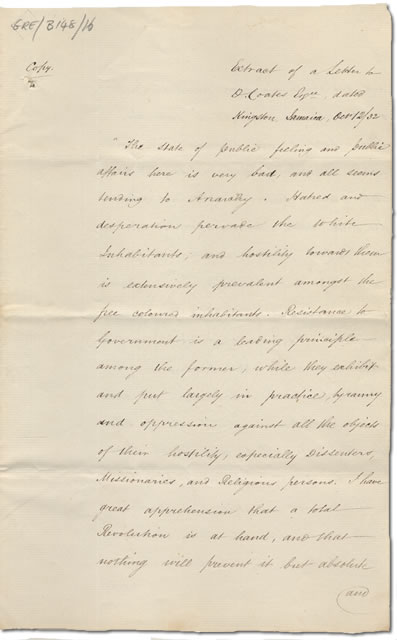 GRE/B148/16
Copy.
Extract of a Letter to
D. Coates Esqre, dated
Kingston, Jamaica, Octr 12/32
"The state of public feeling and public
affairs here is very bad, and all seems
tending to Anarchy. Hatred and
desperation pervade the White
Inhabitants, and hostility towards them
is extensively prevalent amongst the
free coloured inhabitants. Resistance to
Government is a leading principle
among the former, while they exhibit
and put largely in practice, tyranny
and oppression against all the objects
of their hostility, especially Dissenters,
Missionaries, and Religious persons. I have
great apprehension that a total
Revolution is at hand, and that
nothing will prevent it but absolute
and